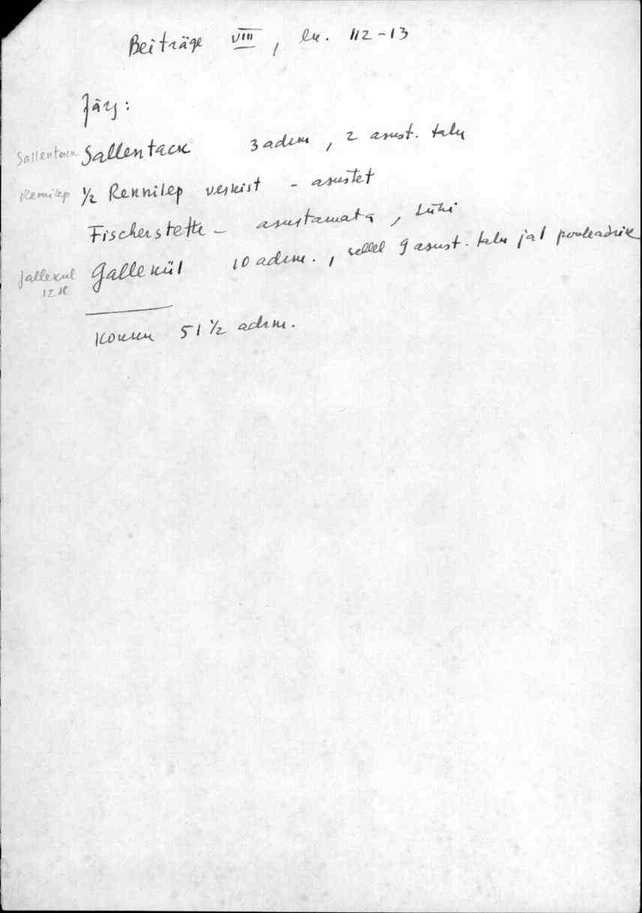 Beiträge VIII, lk. 112-13
Järg:
Sallentack Sallentack 3 adrm, 2 asust. talu
Rennilep ½ Rennilep veskist - asustet
Fischerstette - asustamata, tühi
Jallekul Gallekül 10 adrm., sellel 9 asust. talu ja 1 pooleadrik
12 tl
Kokku 51 ½ adrm.